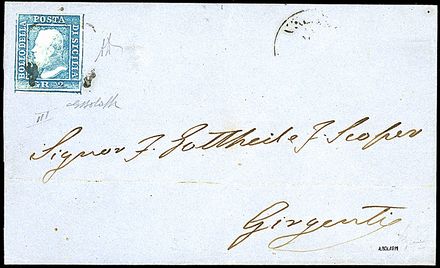 BOLLO DELLA POSTA DI SICILIA
GR. 2
III
Signor J. Gottheil e J. Scoper
Girgenti